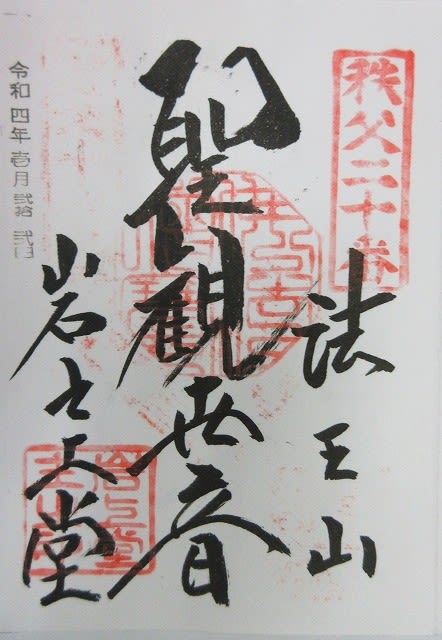 秩父二十番
法王山
聖観世音
岩之上堂
令和四年壱月弐拾弐日